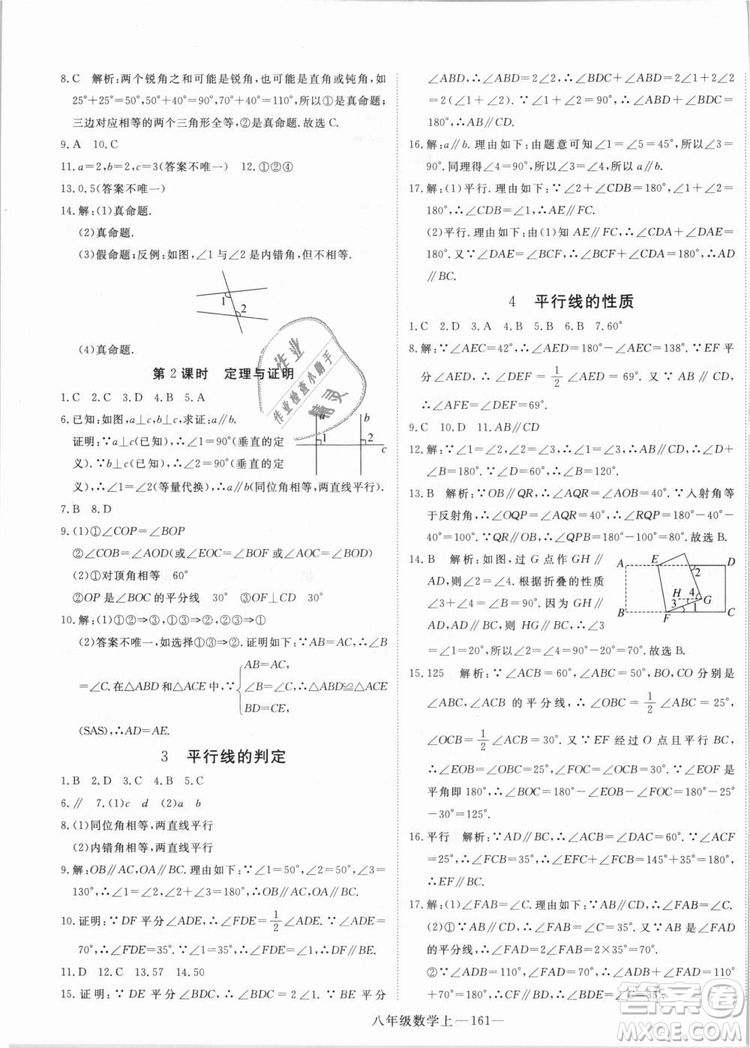 8. C　解析：两个锐角之和可能是锐角，也可能是直角或钝角，如
25°+25°=50°，50°+40°=90°，70°+40°=110°，所以①是真命题；
三边对应相等的两个三角形全等，②是真命题。故选 C.
9. A　10. C
11. a=2，b=2，c=3(答案不唯一)　12. ①②④
13. 0.5(答案不唯一)
14. 解：(1)真命题.
(2)真命题.
(3)假命题；反例：如图，∠1与∠2是内错角，∠2>∠1.
1
2
(4)真命题.
第2课时　定理与证明
1. C　2. C　3. A　4. D　5. A
6. 已知：如图，a⊥c，b⊥c，求证：a∥b.
证明：∵a⊥c(已知)，∴∠1=90°(垂直的定
义). ∵b⊥c(已知)，∴∠2=90°(垂直的定
义)，∴∠1=∠2(等量代换)，∴a∥b(同位角相等，两直线平行).
a
b
1
2
c
7. B　8. D
9. (1)①∠COP=∠BOP
②∠COP=∠AOD(或∠COE=∠BOF或∠COA=∠BOD)
(2)①对顶角相等　60°
②OP是∠BOC的平分线　30°　③OF⊥CD
10. 解：(1)①②⇒③，①③⇒②，②③⇒①
(2)答案不唯一，如选择①③⇒②，证明如下：∵AB=AC，∴∠B
=∠C. 在△ABD和△ACE中，∵{AB=AC，∠B=∠C，BD=CE，∴△ABD≌△ACE
(SAS)，∴AD=AE.
3　平行线的判定
1. B　2. D　3. A　4. D　5. B
6. ∥　7. (1)c　d　(2)a　b
8. (1)同位角相等，两直线平行
(2)内错角相等，两直线平行
9. 解：OB∥AC，OA∥BC. 理由如下：∵∠1=50°，∠2=50°，
∴∠1=∠2，∴OB∥AC. ∵∠2=50°，∠3=
130°，∴∠2+∠3=180°，∴OA∥BC.
10. 证明：∵DF平分∠ADE，∴∠FDE=1/2∠ADE. ∵∠ADE=
70°，∴∠FDE=35°. ∵∠1=35°，∴∠FDE=∠1，∴DF∥BE.
11. D　12. C　13. 57　14. 50
15. 证明：∵DE平分∠BDC，BE平分
∠ABD，∴∠ABD=2∠2，∠BDC=2∠1，∴∠BDC+∠ABD=2∠1+2∠2
=2(∠1+∠2). ∵∠1+∠2=90°，∴∠BDC+∠ABD=
180°，∴AB∥CD.
16. 解：a∥b. 理由如下：由题意可知∠1=90°，所以∠1=∠3=
90°. 同理得∠2=90°，所以∠2=∠3，所以a∥b.
17. 解：(1)平行. 理由如下：∵∠2+∠CDB=180°，∠1+∠2=
180°，∴∠CDB=∠1，∴AE∥FC.
(2)平行. 理由如下：∵∠DAE+∠ADF=180°，∠DAE=
∠BCF，∴∠BCF+∠ADF=180°，∴AD
∥BC.
4　平行线的性质
1. C　2. D　3. A　4. D　5. B　6. B　7. 60°
8. 解：∵∠AEC=42°，∴∠AED=180°-∠AEC=138°. ∵EF平
分∠AED，∴∠DEF=1/2∠AED=69°. ∵AB∥CD，∴∠AFE
=∠DEF=69°.
9. C　10. D　11. AB∥CD
12. 解：∵∠1=72°，∠2=72°，∴∠1=∠2，∴a∥b，∴∠3+∠4
=180°. ∵∠3=60°，∴∠4=120°.
13. B　解析：∵OB∥QR，∴∠AQR=∠AOB=40°. ∵入射角等
于反射角，∴∠OQP=∠AQR=40°，∴∠RQP=180°-
40°-40°=100°. ∵QR∥OB，∴∠QPB=80°. 故选 B.
14. B　解析：如图，过G点作GH∥
AD，∴∠2=∠4. ∵AD∥BC，
∴GH∥BC，∴∠1=∠3. 根据折叠的性质得
∠3+∠4=∠B=90°. 因为
∠1=20°，∴∠3=20°，
∴∠4=90°-20°=70°，∴∠2=70°. 故选 B.
A
E
D
2
H
4
3
G
B
F
1
C
15. 125　解析：∵∠ACB=60°，∠ABC=50°，BO，CO分别是
∠ABC，∠ACB的平分线，∴∠OBC=1/2∠ABC=25°，
∠OCB=1/2∠ACB=30°. 又∵EF经过点O且平行于BC，
∴∠BOE=∠OBC=25°，∠COF=∠OCB=30°. ∵∠EOF是
平角即∠EOF=180°，∴∠BOC=180°-∠BOE-∠COF=180°-25°
-30°=125°.
16. 平行　解析：∵AD∥BC，∴∠ACB=∠DAC=60°. ∵∠ACF
=25°，∴∠BCF=35°，∴∠BCF+∠EFC=145°+35°=180°，
∴EF∥BC. 又∵AD∥BC，∴EF∥AD.
17. 解：(1)∵AE∥BC，∴∠B=∠FAE，∠EAC=∠C.
(2)①∵AB∥CD，∴∠FAD=∠ADC. 又∵AD是∠FAC
的平分线，∴∠FAC=2∠FAD=2×35°=70°.
②∵∠ADB=110°，∴∠ADC=70°. ∵AB∥CD，∴∠FAD=
∠ADC=35°.
八年级数学上—161—
作业
作业检查小助手
精灵
答案圈
MXQE.COM